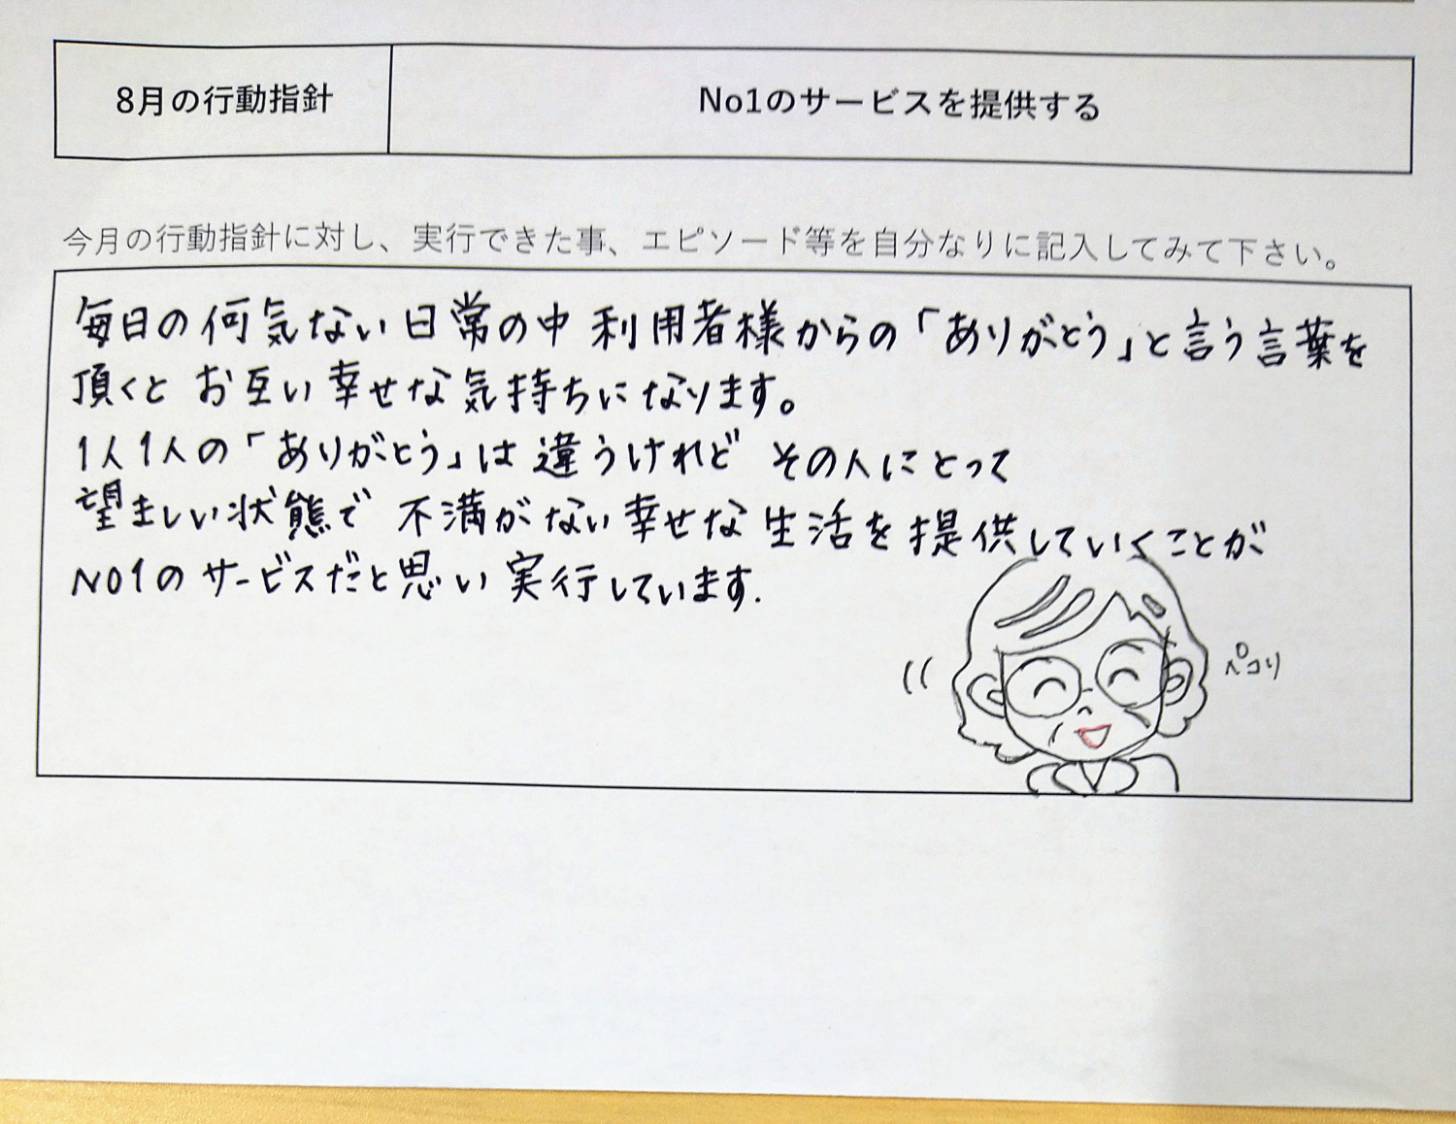 8月の行動指針
No1のサービスを提供する
今月の行動指針に対し、実行できた事、エピソード等を自分なりに記入してみて下さい。
毎日の何気ない日常の中 利用者様からの「ありがとう」と言う言葉を
頂くと お互い幸せな気持ちになります。
1人1人の「ありがとう」は違うけれど その人にとって
望ましい状態で 不満がない幸せな生活を提供していくことが
NO1のサービスだと思い実行しています.
ペコリ